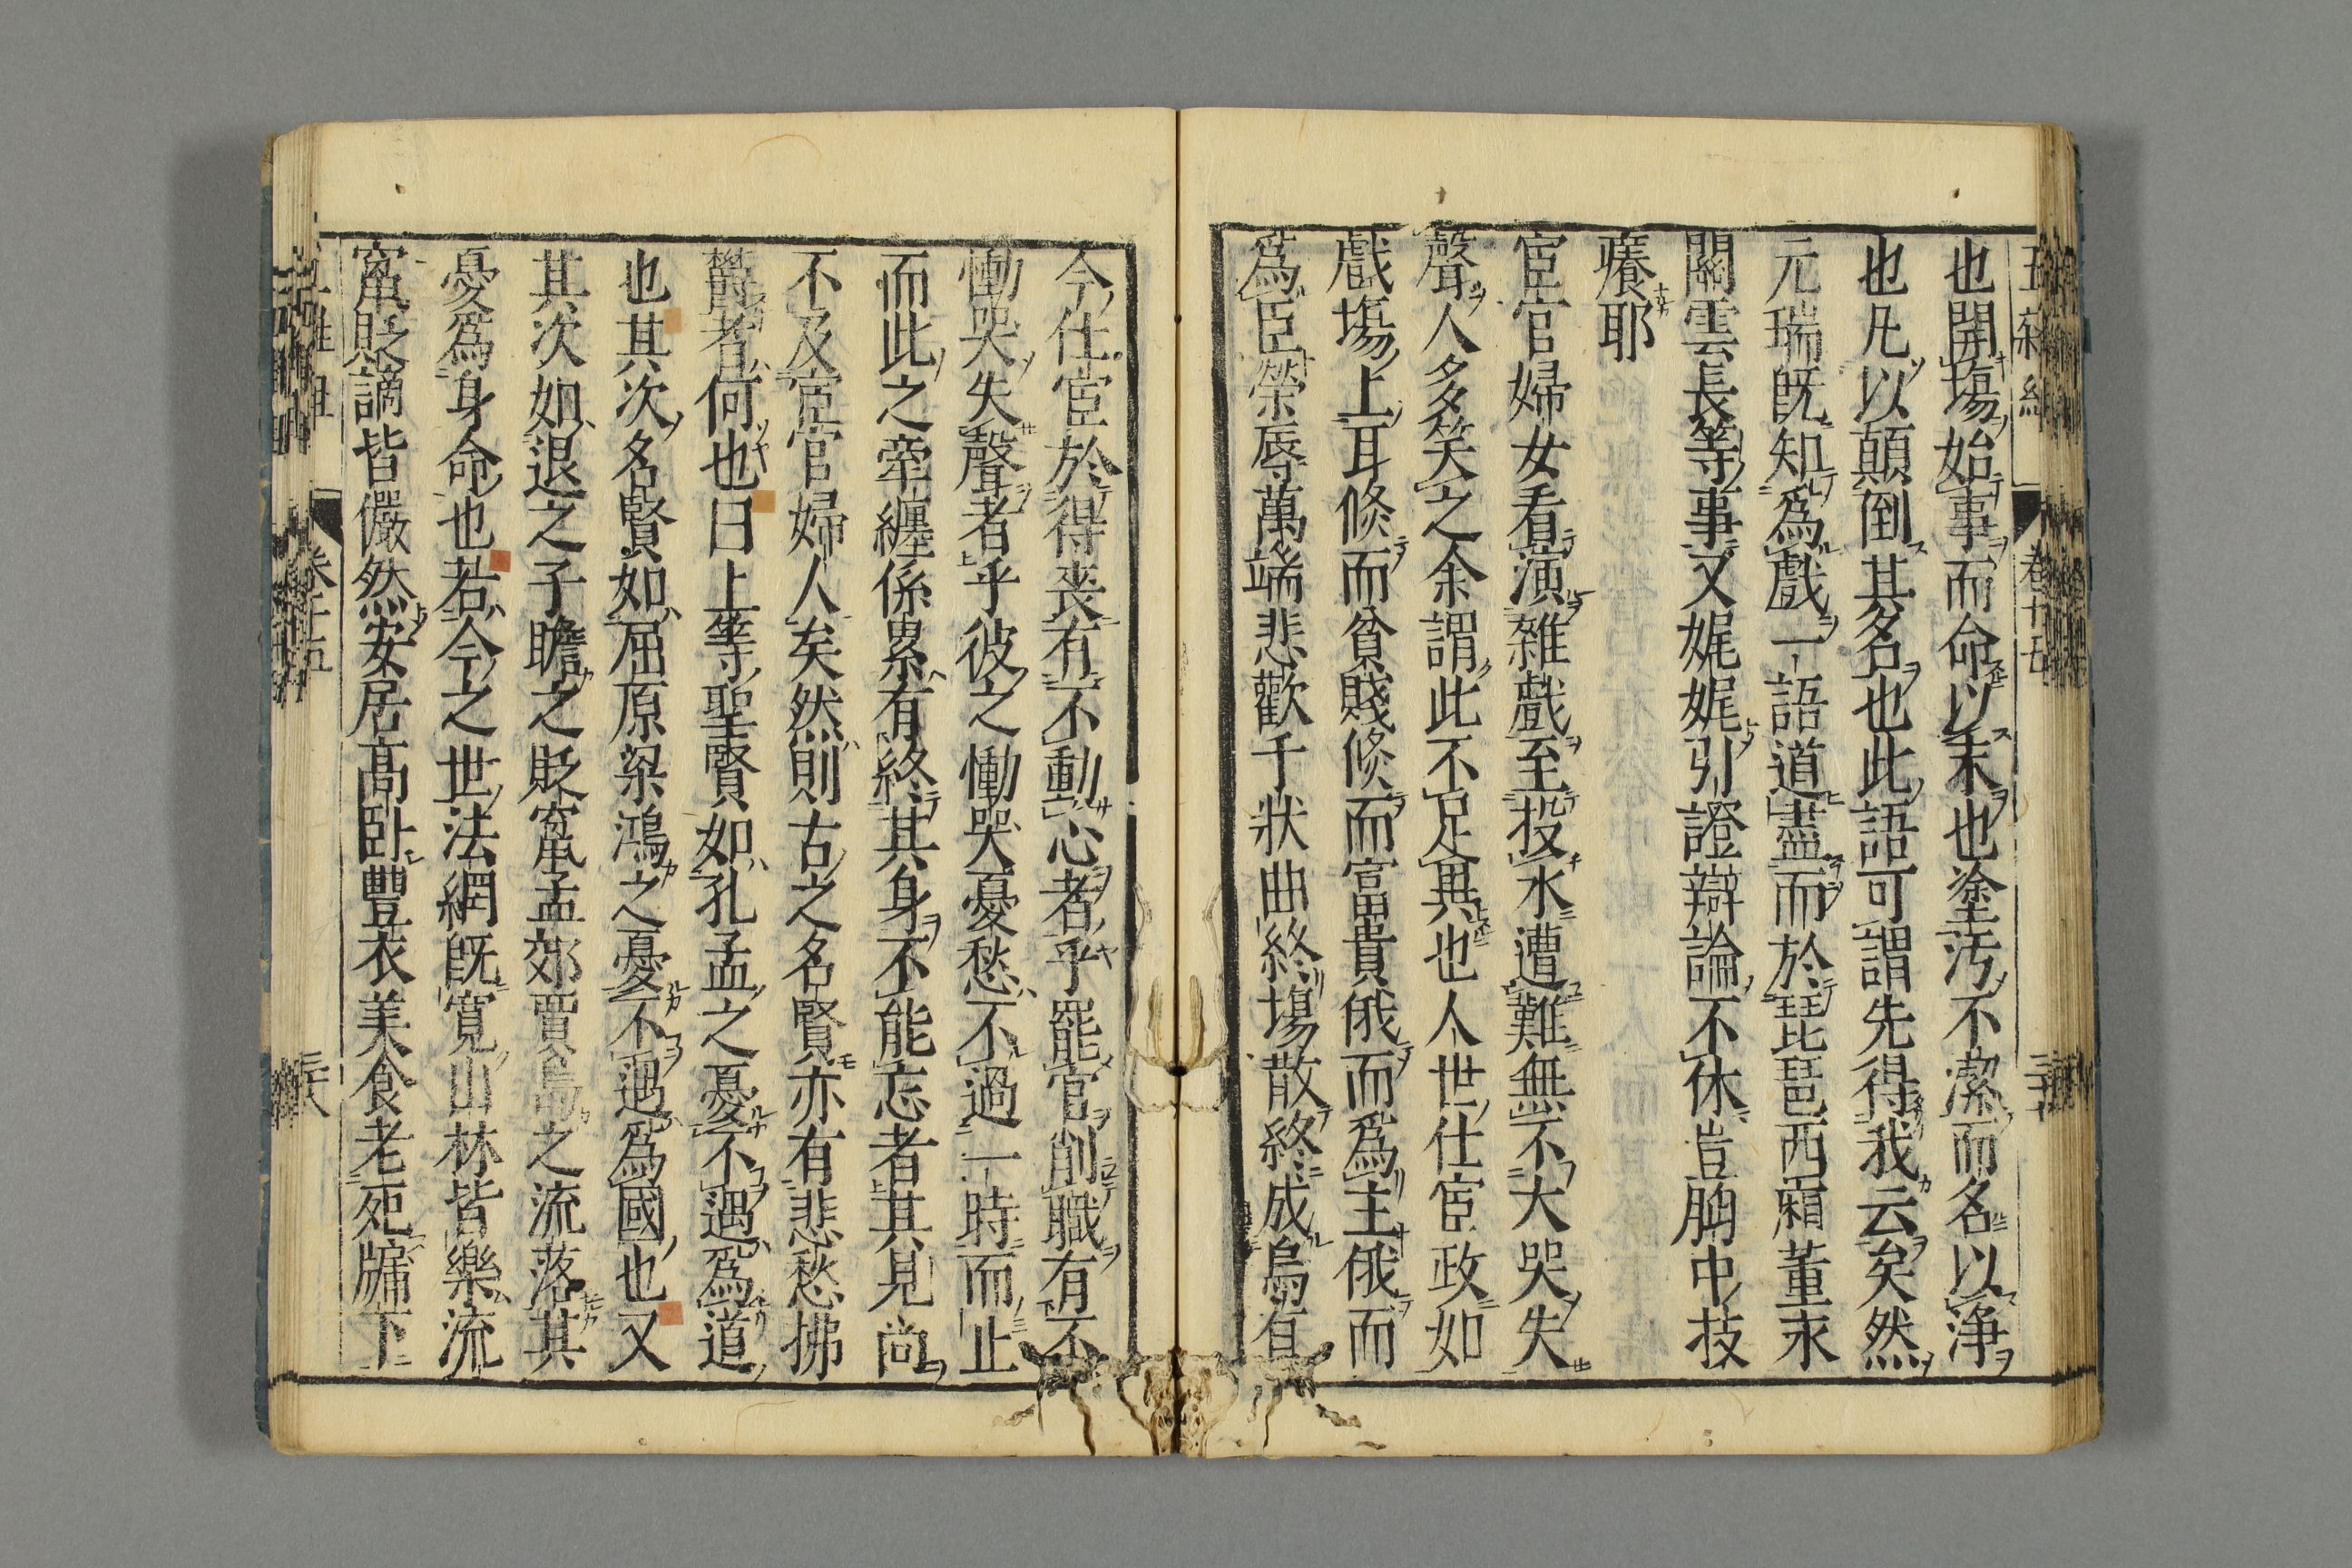 五雜組 卷十五
也開塲始事而命以末也塗汚不潔而名以淨
也凡以顛倒其名也此語可謂先得我云矣然
元瑞旣知爲戲一語道盡而於琵琶西廂董永
關雲長等事又娓娓引證辯論不休豈胸中技
癢耶
宦官婦女看演雜戲至投水遭難無不大哭失
聲人多笑之余謂此不足異也人世仕宦政如
戲塲上耳倐而貧賤倐而富貴俄而爲主俄而
爲臣榮辱萬端悲歡千狀曲終塲散終成烏有
今仕宦於得喪有不動心者乎罷官削職有不
慟哭失聲者乎彼之慟哭憂愁不過一時而止
而此之牽纏係累有終其身不能忘者其見尚
不及宦官婦人矣然則古之名賢亦有悲愁拂
鬱者何也曰上等聖賢如孔孟之憂不遇爲道
也其次名賢如屈原梁鴻之憂不遇爲國也又
其次如退之子瞻之貶竄孟郊賈島之流落其
憂爲身命也若今之世法網旣寛山林皆樂流
竄貶謫皆儼然安居高臥豐衣美食老死牖下
卷十五